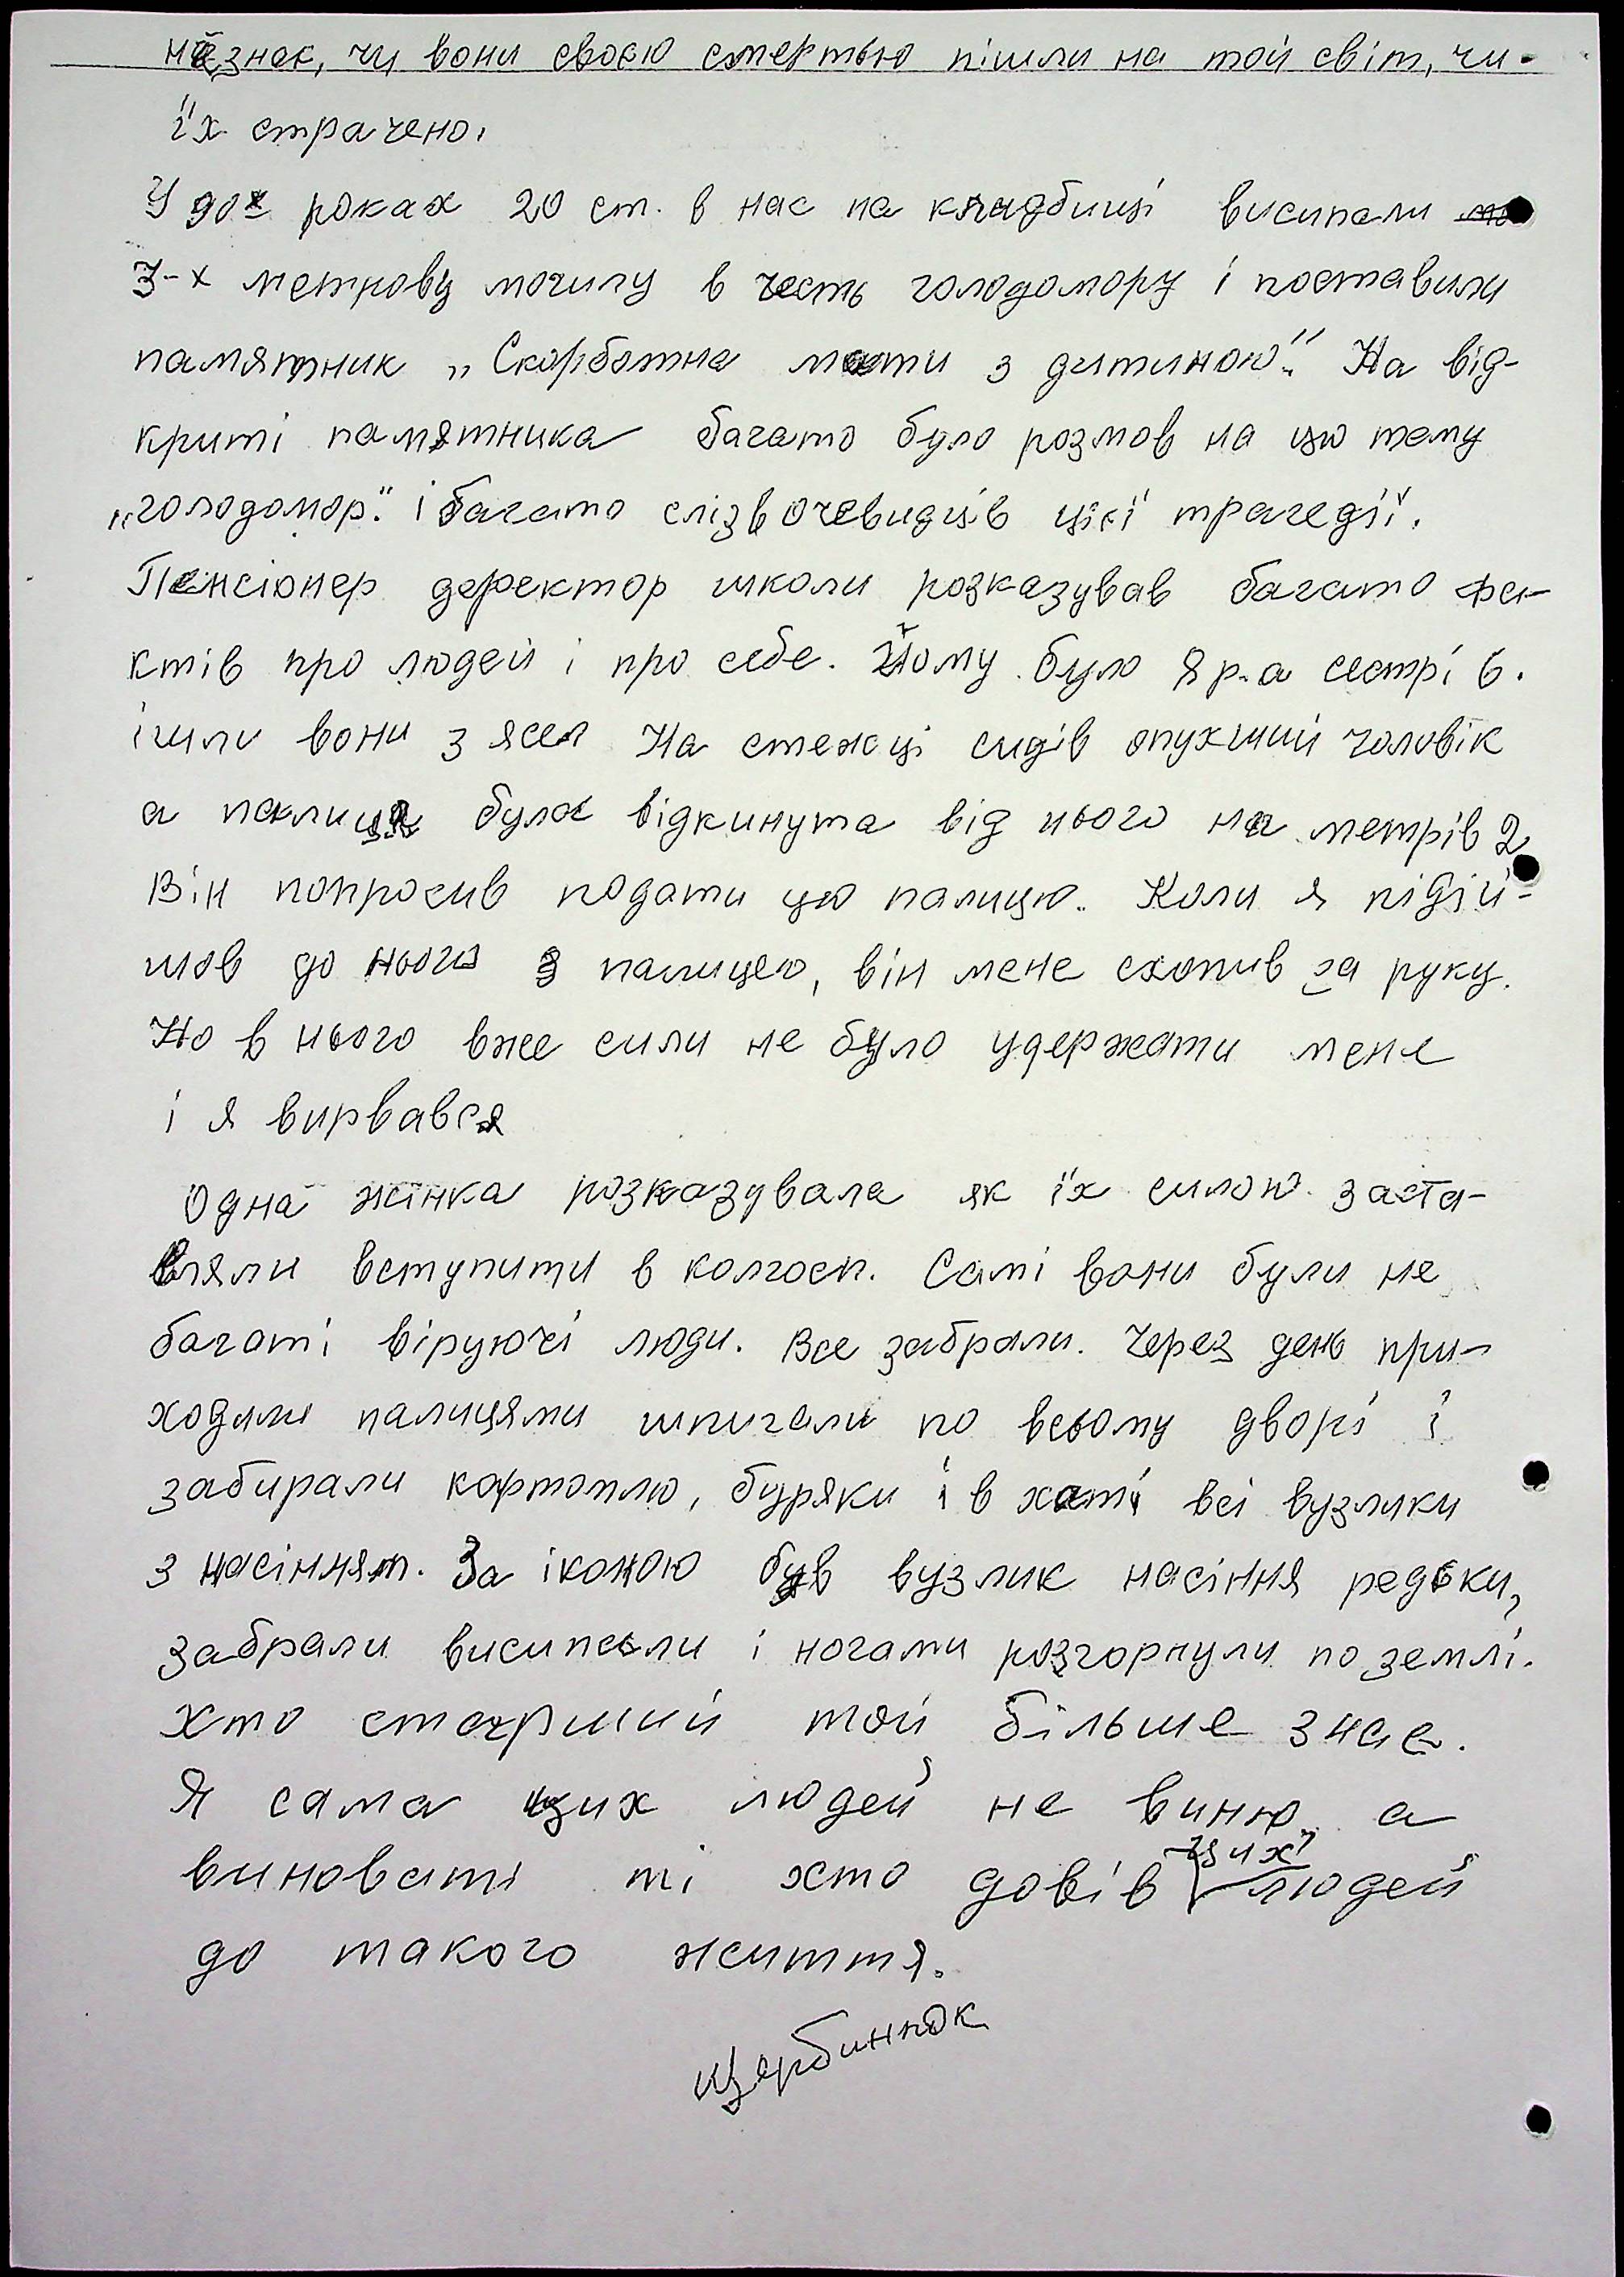 не знає, чи вони своєю смертью пішли на той світ, чи
їх страчено.
У 90х роках 20 ст. в нас на кладбищі висипали
3-х метрову могилу в честь голодомору і поставили
памятник „Скорботна мати з дитиною". На від-
криті памятника багато було розмов на цю тему
„голодомор". і багато сліз в очевидців цієї трагедії.
Пенсіонер деректор школи розказував багато фа-
ктів про людей і про себе. Йому було 8 р. а сестрі 6.
ішли вони з ясел На стежці сидів опухший чоловік
а палиця була відкинута від нього на метрів 2
Він попросив подати цю палицю. Коли я підій-
шов до нього з палицею, він мене схопив за руку.
Но в нього вже сили не було удержати мене
і я вирвався
Одна жінка розказувала як їх силою заста-
вляли вступити в колгосп. Самі вони були не
багаті віруючі люди. Все забрали. Через день при-
ходили палицями шпигали по всьому дворі і
забирали картоплю, буряки і в хаті всі вузлики
з насінням. За іконою був вузлик насіння редьки,
забрали висипали і ногами розгорнули по землі.
Хто старший той більше знає.
Я сама цих людей не виню а
виноваті ті хто довів цих людей
до такого життя.
Щербинюк